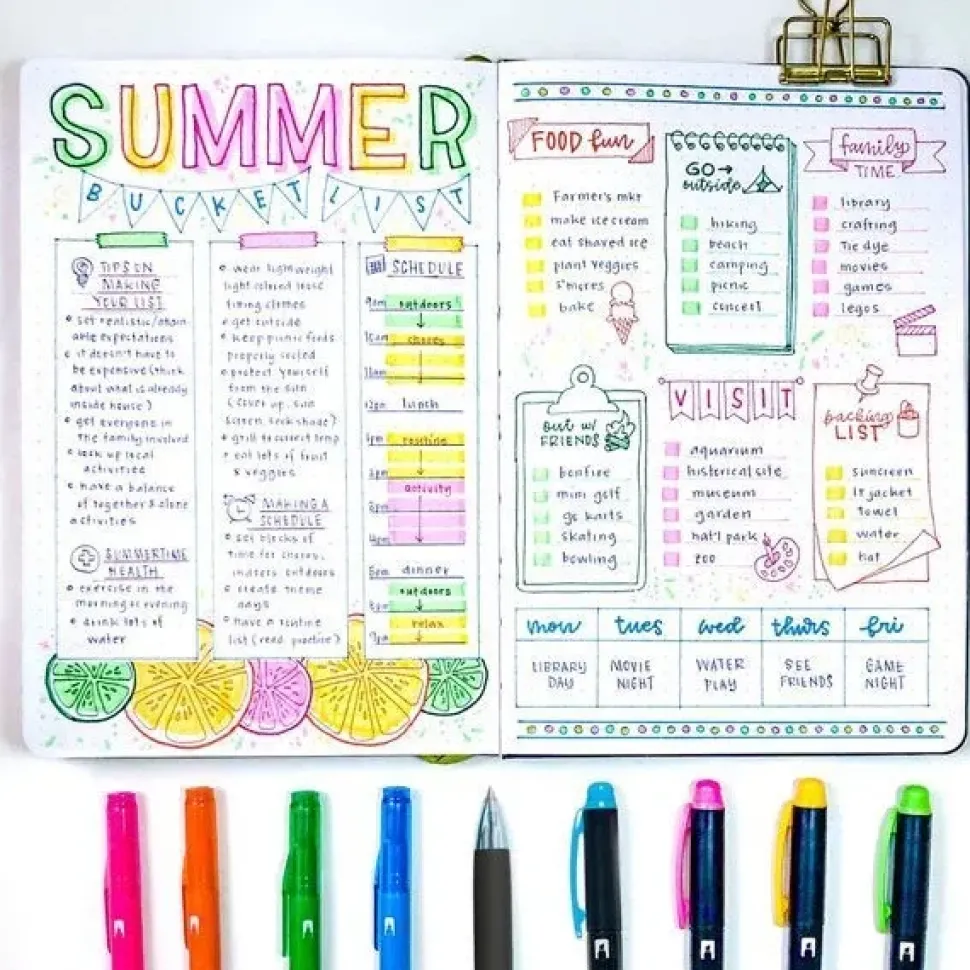 SUMMER
BUCKET LIST
TIPS ON
MAKING
YOUR LIST
set realistic/attain
able expectations
it doesn't have to
be expensive (think
about what is already
inside house)
get everyone in
the family involved
look up local
activities
have a balance
of together & alone
activities
SUMMERTIME
HEALTH
exercise in the
morning or evening
drink lots of
water
wear lightweight
light colored loose
fitting clothes
get outside
keep picnic foods
properly cooled
protect yourself
from the sun
(cover up, sun
screen, seek shade)
grill to correct temp
eat lots of fruit
& veggies
MAKING A
SCHEDULE
set blocks of
time for chores,
outdoors
create theme
days
have a routine
list (read, practice)
SCHEDULE
9am outdoors
10am chores
11am
12pm lunch
1pm routine
2pm
activity
3pm
4pm
6pm dinner
outdoors
8pm
relax
9pm
FOOD fun
Farmer's mkt
make ice cream
eat shaved ice
plant veggies
s'mores
bake
GO→
outside
hiking
beach
camping
picnic
concert
family
TIME
library
crafting
Tie dye
movies
games
legos
out w/
FRIENDS
bonfire
mini golf
go karts
skating
bowling
VISIT
aquarium
historical site
museum
garden
nat'l park
zoo
packing
LIST
sunscreen
lt jacket
towel
water
hat
mon tues wed thurs fri
LIBRARY MOVIE WATER SEE GAME
DAY NIGHT PLAY FRIENDS NIGHT